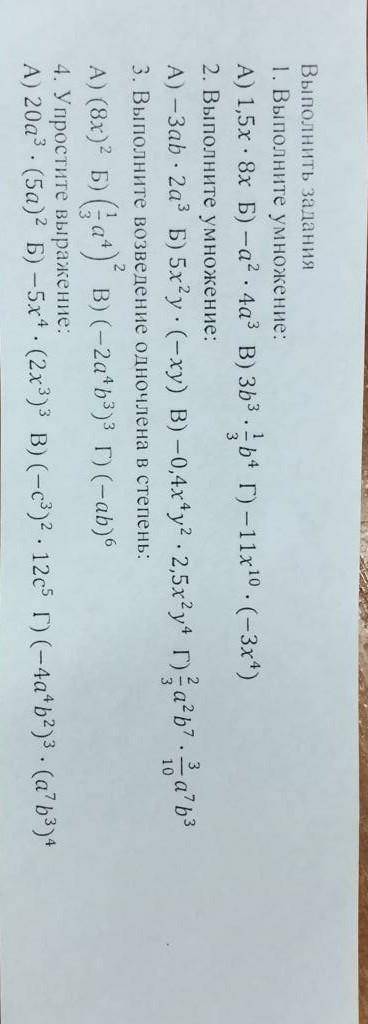 Выполнить задания
1. Выполните умножение:
А) 1,5x · 8x Б) −a² · 4a³ В) 3b³ · 1/3 b⁴ Г) −11x¹⁰ · (−3x⁴)
2. Выполните умножение:
А) −3ab · 2a³ Б) 5x²y · (−xy) В) −0,4x⁴y² · 2,5x²y⁴ Г) 2/3 a²b⁷ · 3/10 a⁷b³
3. Выполните возведение одночлена в степень:
А) (8x)² Б) (1/3 a⁴)² В) (−2a⁴b³)³ Г) (−ab)⁶
4. Упростите выражение:
А) 20a³ · (5a)² Б) −5x⁴ · (2x³)³ В) (−c³)² · 12c⁵ Г) (−4a⁴b²)³ · (a⁷b³)⁴